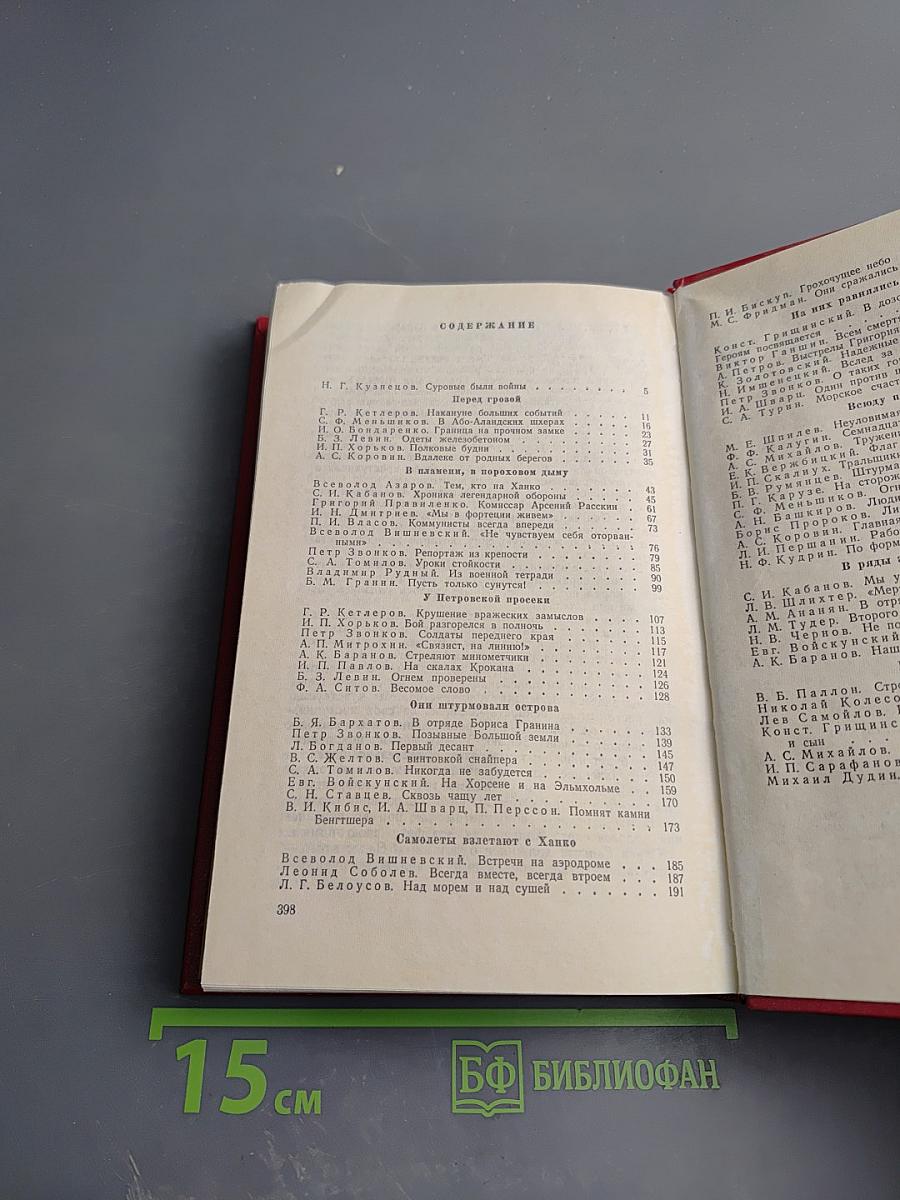 СОДЕРЖАНИЕ
Н. Г. Кузнецов. Суровые были войны . . . . . . . . 5
Перед грозой
Г. Р. Кетлеров. Накануне больших событий . . . . . 11
С. Ф. Меньшиков. В Або-Аландских шхерах . . . . . 16
И. О. Бондаренко. Граница на прочном замке . . . . . 23
Б. З. Левин. Одеты железобетоном . . . . . . . . 27
И. П. Хорьков. Полковые будни . . . . . . . . . 31
А. С. Коровин. Вдалеке от родных берегов . . . . . . 35
В пламени, в пороховом дыму
Всеволод Азаров. Тем, кто на Ханко . . . . . . . 43
С. И. Кабанов. Хроника легендарной обороны . . . . . 45
Григорий Правиленко. Комиссар Арсений Расскин . . 61
И. Н. Дмитриев. «Мы в фортеции живем» . . . . . . 67
П. И. Власов. Коммунисты всегда впереди . . . . . . 73
Всеволод Вишневский. «Не чувствуем себя оторван-
ными» . . . . . . . . . . . . . . . . 76
Петр Звонков. Репортаж из крепости . . . . . . . 79
С. А. Томилов. Уроки стойкости . . . . . . . . . 85
Владимир Рудный. Из военной тетради . . . . . . 90
Б. М. Гранин. Пусть только сунутся! . . . . . . . 99
У Петровской просеки
Г. Р. Кетлеров. Крушение вражеских замыслов . . . . 107
И. П. Хорьков. Бой разгорелся в полночь . . . . . . 113
Петр Звонков. Солдаты переднего края . . . . . . 115
А. П. Митрохин. «Связист, на линию!» . . . . . . . 117
А. К. Баранов. Стреляют минометчики . . . . . . . 121
И. П. Павлов. На скалах Крокана . . . . . . . . 124
Б. З. Левин. Огнем проверены . . . . . . . . . 126
Ф. А. Ситов. Весомое слово . . . . . . . . . . 128
Они штурмовали острова
Б. Я. Бархатов. В отряде Бориса Гранина . . . . . . 133
Петр Звонков. Позывные Большой земли . . . . . . 139
Л. Богданов. Первый десант . . . . . . . . . . 145
В. С. Желтов. С винтовкой снайпера . . . . . . . 147
С. А. Томилов. Никогда не забудется . . . . . . . 150
Евг. Войскунский. На Хорсене и на Эльмхольме . . . 159
С. Н. Ставцев. Сквозь чащу лет . . . . . . . . . 170
В. И. Кибис, И. А. Шварц, П. Перссон. Помнят камни
Бенгтшера . . . . . . . . . . . . . . 173
Самолеты взлетают с Ханко
Всеволод Вишневский. Встречи на аэродроме . . . 185
Леонид Соболев. Всегда вместе, всегда втроем . . . 187
Л. Г. Белоусов. Над морем и над сушей . . . . . . . 191
398
П. И. Бискуп. Грохочущее небо
М. С. Фридман. Они сражались
На них равнялись
Конст. Грищинский. В дозо
Героям посвящается . . . .
Виктор Ганшин. Всем смерт
А. Петров. Выстрелы Григория
К. Золотовский. Надежные
Н. Имшенецкий. Вслед за
Петр Звонков. О таких го
И. А. Шварц. Один против ц
С. А. Турин. Морское счаст
Всюду п
М. Е. Шпилев. Неуловимая
Ф. Ф. Калугин. Семнадца
А. С. Михайлов. Тружен
Е. К. Вержбицкий. Флаг
И. П. Скалиух. Тральщики
Б. В. Румянцев. Штурма
П. Г. Карузе. На сторож
С. Ф. Меньшиков. Огн
А. Н. Башкиров. Люди
Борис Пророков. Ли
А. С. Коровин. Главная
Л. И. Першанин. Рабо
Н. Ф. Кудрин. По форм
В ряды
С. И. Кабанов. Мы у
Л. В. Шлихтер. «Мер
А. М. Ананян. В отря
Л. М. Тудер. Второго
Н. В. Чернов. Не по
Евг. Войскунский
А. К. Баранов. Наш
В. Б. Паллон. Стр
Николай Колесо
Лев Самойлов.
Конст. Грищинс
и сын . . .
А. С. Михайлов.
И. П. Сарафанов
Михаил Дудин.
15 см
БФ БИБЛИОФАН